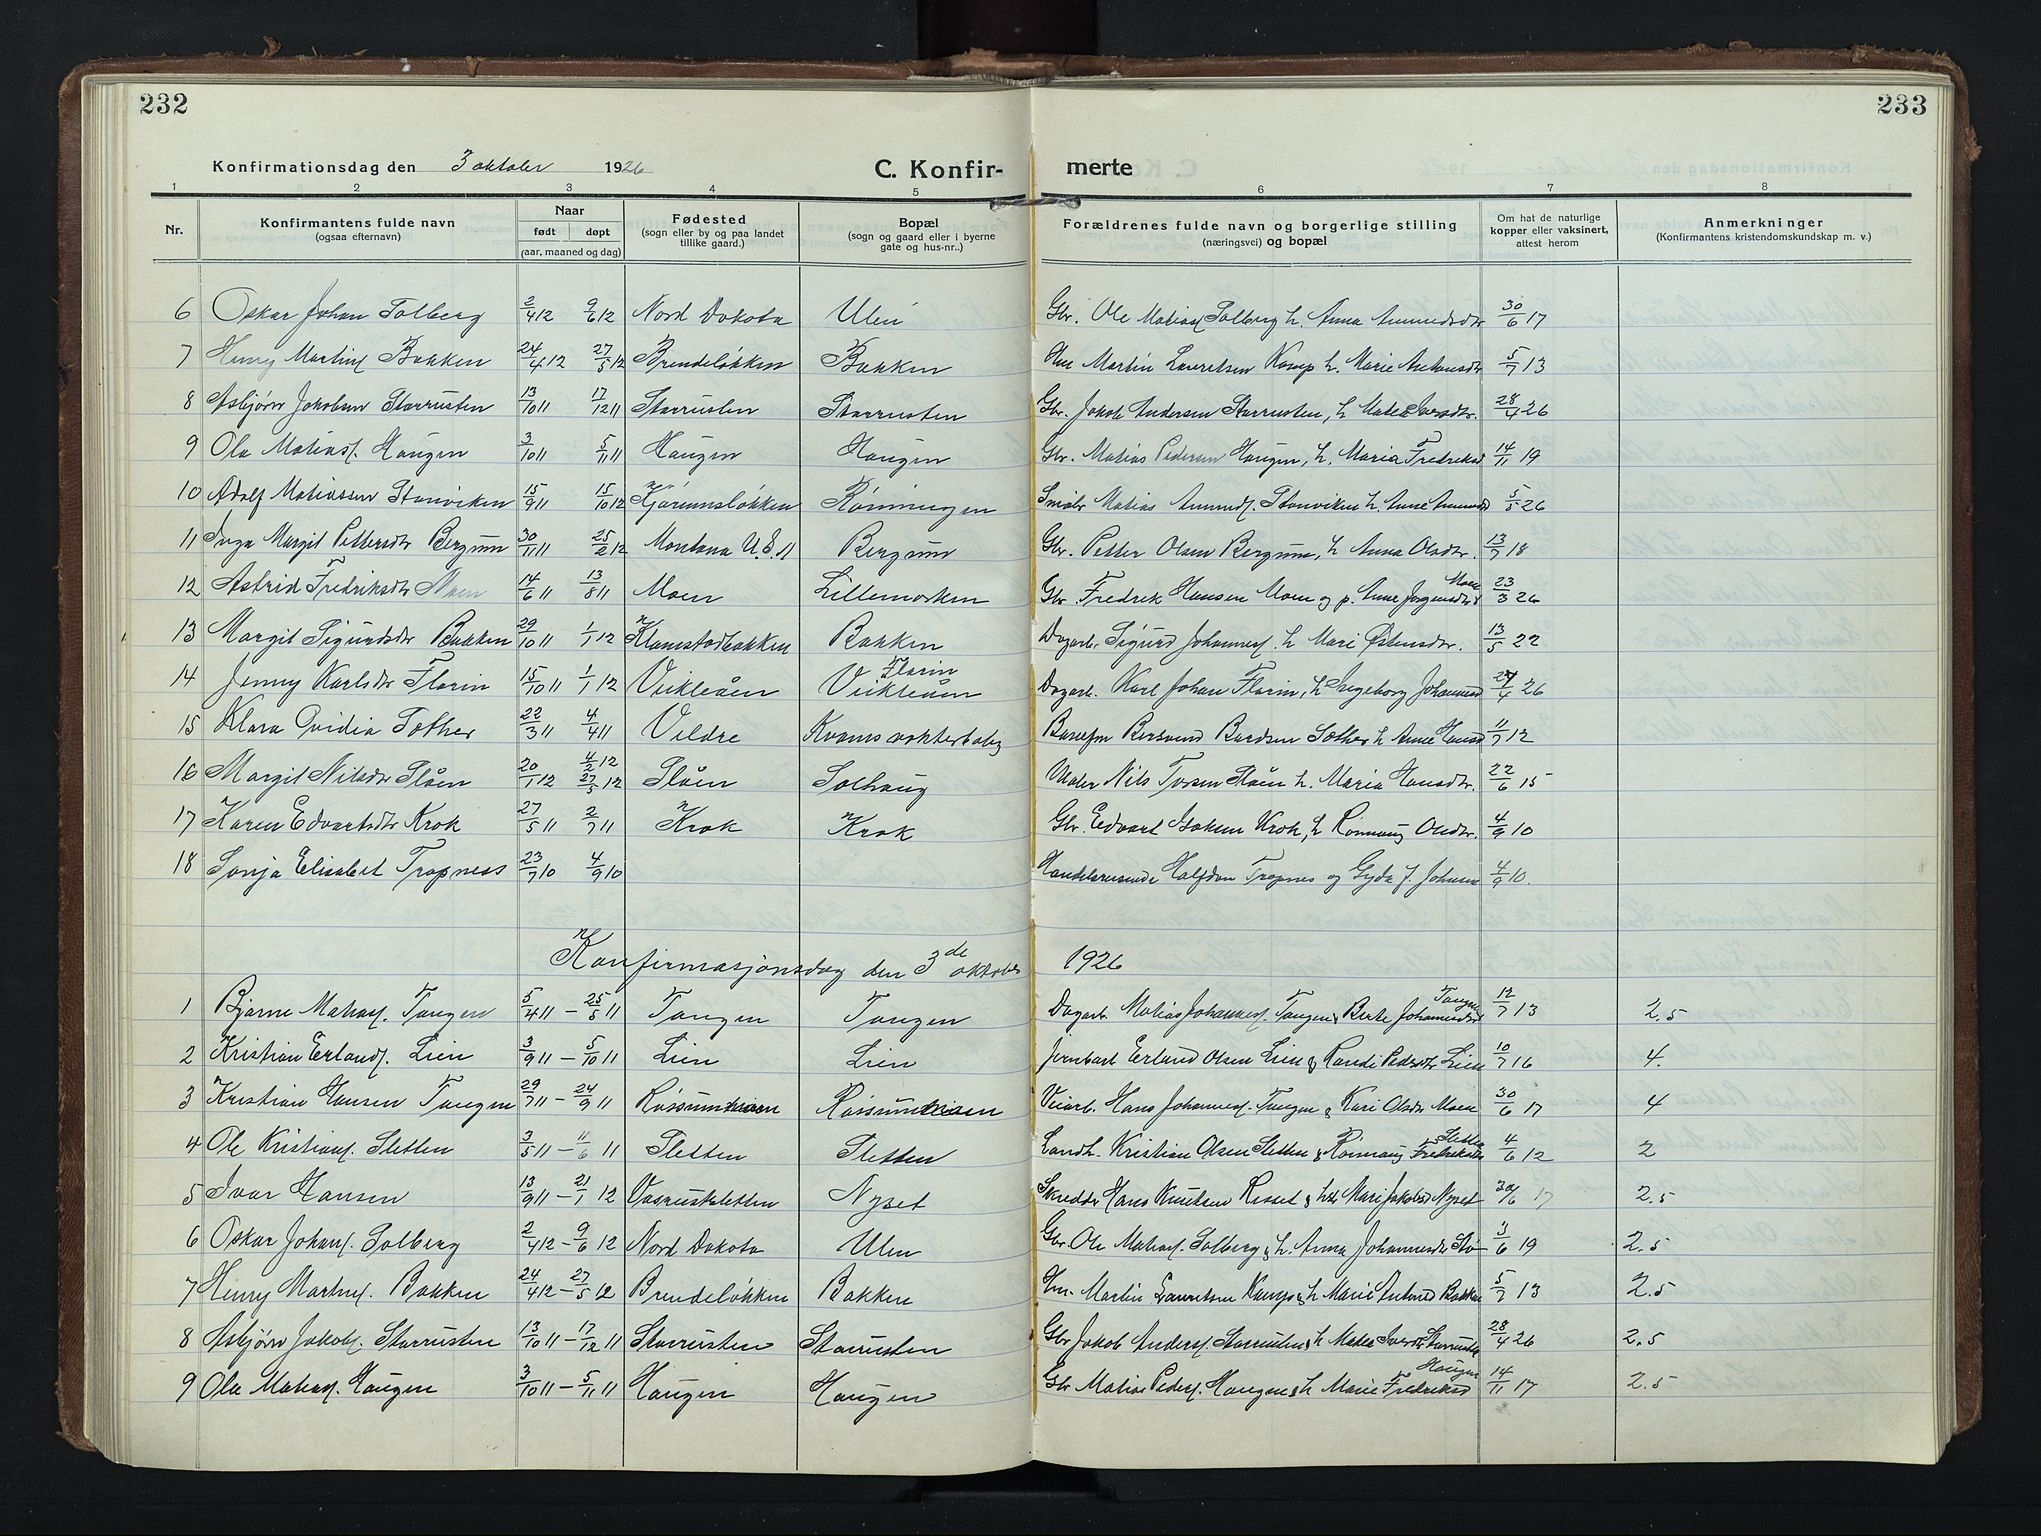 232
233
Konfirmationsdag den 3 oktober 1926 C. Konfir- merte
1 2 3 4 5 6 7 8
Nr. Konfirmantens fulde navn (ogsaa efternavn) Naar født døpt (aar, maaned og dag) Fødested (sogn eller by og paa landet tillike gaard.) Bopæl (sogn og gaard eller i byerne gate og hus-nr..) Forældrenes fulde navn og borgerlige stilling (næringsvei) og bopæl Om hat de naturlige kopper eller vaksinert, attest herom Anmerkninger (Konfirmantens kristendomskundskap m. v.)
6 Oskar Johan Solberg 2/4 12 9/6 12 Nord Dakota Ulen Gbr. Ole Matias Solberg h. Anna Amundsdtr 30/6 17
7 Henry Martins Bakken 24/4 12 27/5 12 Brendeløkken Bakken Martin Lauretsen Kamp h. Marie Antonsdtr 5/7 13
8 Asbjørn Jakobsen Storrusten 13/10 11 17/12 11 Storrusten Storrusten Gbr. Jakob Andersen Storrusten, h Iversdtr. 28/4 26
9 Ola Matias. Haugen 3/10 11 5/11 11 Haugen Haugen Gbr. Matias Pedersen Haugen, h. Maria Fredriksd 14/11 19
10 Adolf Matiassen Stanviken 15/9 11 15/10 12 Kjørumsløkken Rønningen Småbr Matias Amunds. Stanviken h. Anne Amundsd 5/5 26
11 Inga Margit Pettersdtr Bergum 30/11 11 25/2 12 Montana U.S.A Bergum Gbr. Petter Olsen Bergum, h Anna Olsdtr. 13/7 18
12 Astrid Fredriksdtr Moen 14/6 11 13/8 11 Moen Lillemorken Gbr. Fredrik Hansen Moen og p. Anne Jørgensdtr Moen 23/3 26
13 Margit Sigurdsdtr Bakken 29/10 11 1/1 12 Klomstadbakken Bakken Dagarb. Sigurd Johannes. h Mari Østensdtr. 13/5 22
14 Jenny Karlsdtr Florin 15/10 11 1/1 12 Veikleåen Veikleåen Florin Dagarb. Karl Johan Florin, h Ingeborg Johannesd 27/4 26
15 Klara Ovidia Sæther 22/3 11 4/4 11 Veldre Kvams vokterbolig Banefm Bersvend Bardsen Sæther h Anne Hansd 11/7 12
16 Margit Nilsdtr Sløen 20/1 12 4/2 12 27/5 12 Sløen Solhaug Maler Nils Torsen Sløen h. Maria Hansdtr. 22/6 15
17 Karen Edvartsdtr Krok 27/5 11 2/7 11 Krok Krok Gbr. Edvart Krok, h Rønnaug Olsdtr. 4/9 10
18 Sonja Elisabet Trapness 23/7 10 4/9 10 Handelsreisende Halfdan Trapnes og Gyda J. Johnsen 4/9 10.
Konfirmasjonsdag den 3de oktober 1926
1 Bjarne Matias. Tangen 5/4 11 – 25/5 11 Tangen Tangen Dagarb. Matias Johannes. Tangen & Berte Johannesdtr Tangen 12/7 13 2.5
2 Kristian Erlands. Lien 3/9 11 – 5/10 11 Lien Lien Jernbarb Erland Olsen Lien & Randi Pedersdtr Lien 10/7 16 4.
3 Kristian Hansen Tangen 29/7 11 – 24/9 11 Veiarb. Hans Johannes. Tangen & Kari Olsdtr Moen 30/6 17 4
4 Ole Kristians. Sletten 3/5 11 – 11/6 11 Sletten Sletten Landh. Kristian Olsen Sletten & Rønnaug Fredriksdtr Sletten 4/6 12 2
5 Ivar Hansen 13/9 11 – 21/1 12 Vaarustsletten Nyset Skredder Hans Knutsen Risset & Mari Jakobsd Nyset 30/6 17 2.5
6 Oskar Johan. Solberg 2/4 12 – 9/6 12 Nord Dakota Ulen Gbr. Ole Matias. Solberg & h. Anna Johannesdtr 3/6 19 2.5
7 Henry Martins. Bakken 24/4 12 – 27/5 12 Brendeløkken Bakken Martin Lauretsen Kamp & h Marie Antonsd Bakken 5/7 13 2.5
8 Asbjørn Jakobs. Storrusten 13/10 11 – 17/12 11 Storrusten Storrusten Gbr Jakob Anders. Storrusten & h Iversdtr Storrusten 28/4 26 2.5
9 Ola Matias. Haugen 3/10 11 – 5/11 11 Haugen Haugen Gbr Matias Peders. Haugen & h Marie Fredriksd Haugen 14/11 17 2.5